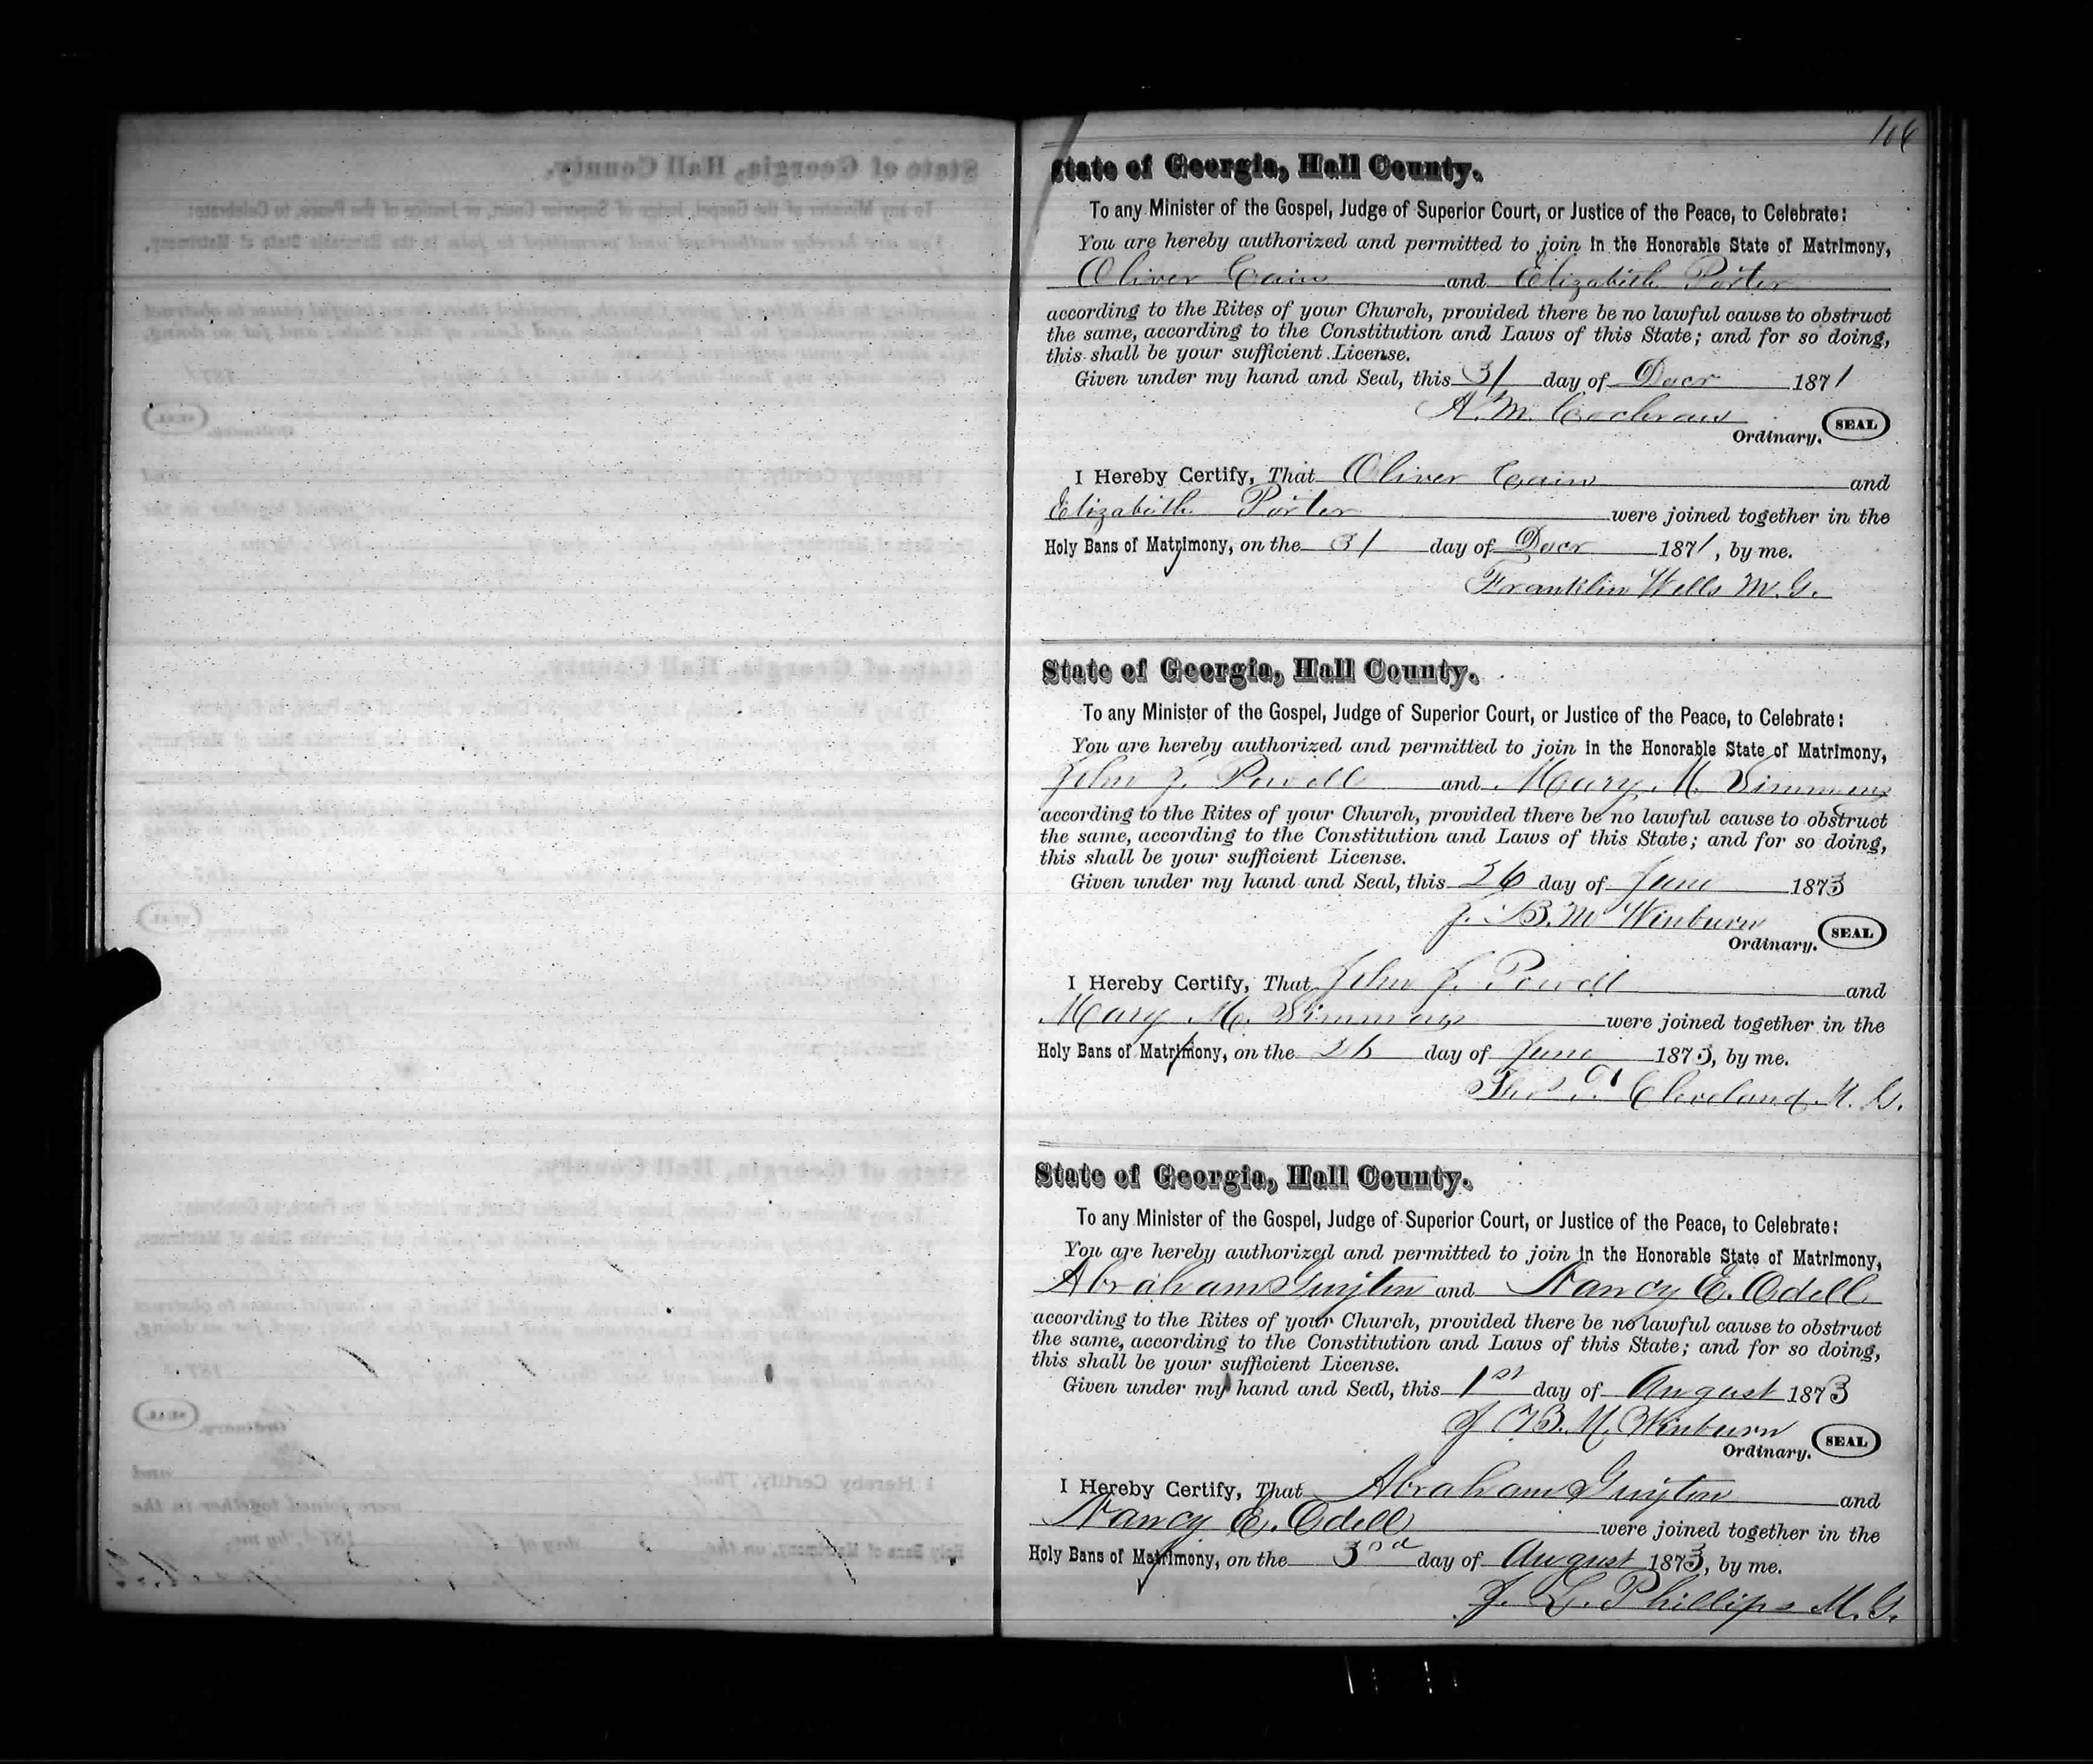 106
State of Georgia, Hall County.
To any Minister of the Gospel, Judge of Superior Court, or Justice of the Peace, to Celebrate:
You are hereby authorized and permitted to join in the Honorable State of Matrimony,
Oliver Cain and Elizabeth Porter
according to the Rites of your Church, provided there be no lawful cause to obstruct
the same, according to the Constitution and Laws of this State; and for so doing,
this shall be your sufficient License.
Given under my hand and Seal, this 31 day of Decr 1871
A. M. Cochran
Ordinary. SEAL
I Hereby Certify, That Oliver Cain and
Elizabeth Porter were joined together in the
Holy Bans of Matrimony, on the 31 day of Decr 1871, by me.
Franklin Wells M. G.
State of Georgia, Hall County.
To any Minister of the Gospel, Judge of Superior Court, or Justice of the Peace, to Celebrate:
You are hereby authorized and permitted to join in the Honorable State of Matrimony,
John J. Powell and Mary M. Simmons
according to the Rites of your Church, provided there be no lawful cause to obstruct
the same, according to the Constitution and Laws of this State; and for so doing,
this shall be your sufficient License.
Given under my hand and Seal, this 26 day of June 1873
J. B. M Winburn
Ordinary. SEAL
I Hereby Certify, That John J. Powell and
Mary M. Simmons were joined together in the
Holy Bans of Matrimony, on the 26 day of June 1873, by me.
Cleveland M. G.
State of Georgia, Hall County.
To any Minister of the Gospel, Judge of Superior Court, or Justice of the Peace, to Celebrate:
You are hereby authorized and permitted to join in the Honorable State of Matrimony,
Abraham Guyton and Nancy E. Odell
according to the Rites of your Church, provided there be no lawful cause to obstruct
the same, according to the Constitution and Laws of this State; and for so doing,
this shall be your sufficient License.
Given under my hand and Seal, this 1st day of August 1873
J. B. M. Winburn
Ordinary. SEAL
I Hereby Certify, That Abraham Guyton and
Nancy E. Odell were joined together in the
Holy Bans of Matrimony, on the 3rd day of August 1873, by me.
J. L. Phillips M. G.